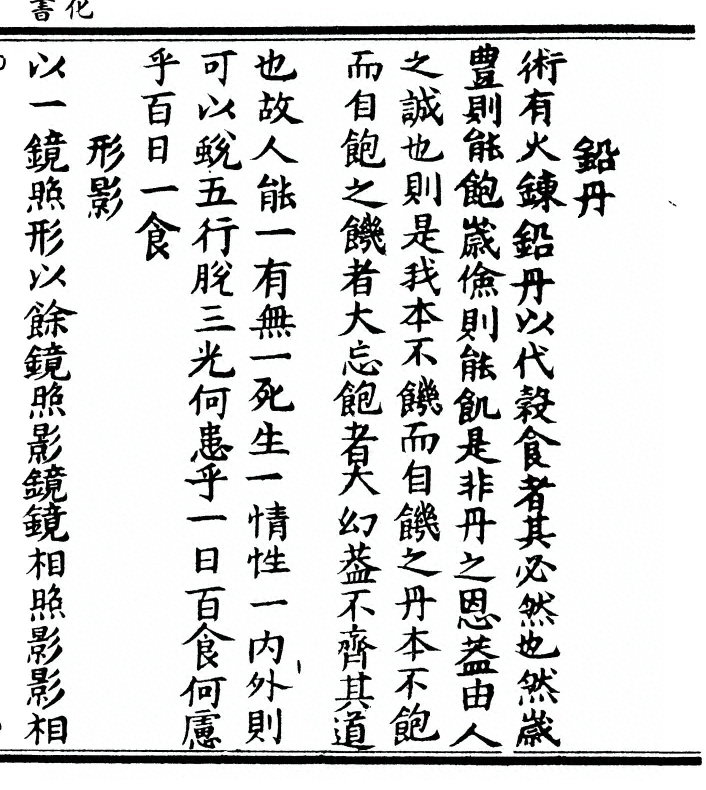 化書
鉛丹
術有火鍊鉛丹以代穀食者其必然也然歲
豐則能飽歲儉則能飢是非丹之恩葢由人
之誠也則是我本不饑而自饑之丹本不飽
而自飽之饑者大忘飽者大幻葢不齊其道
也故人能一有無一死生一情性一内外則
可以蛻五行脫三光何患乎一日百食何慮
乎百日一食
形影
以一鏡照形以餘鏡照影鏡鏡相照影影相